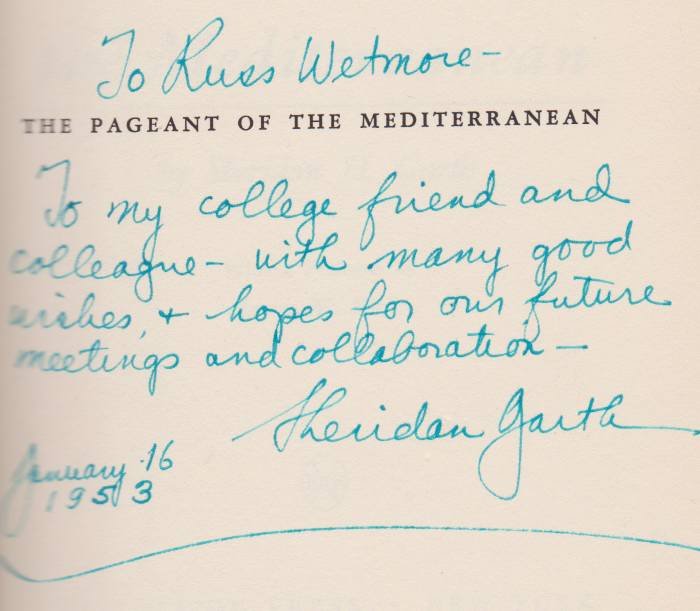 To Russ Wetmore —
THE PAGEANT OF THE MEDITERRANEAN
To my college friend and
colleague — with many good
wishes, & hopes for our future
meetings and collaboration —
Sheridan Garth
January 16
1953